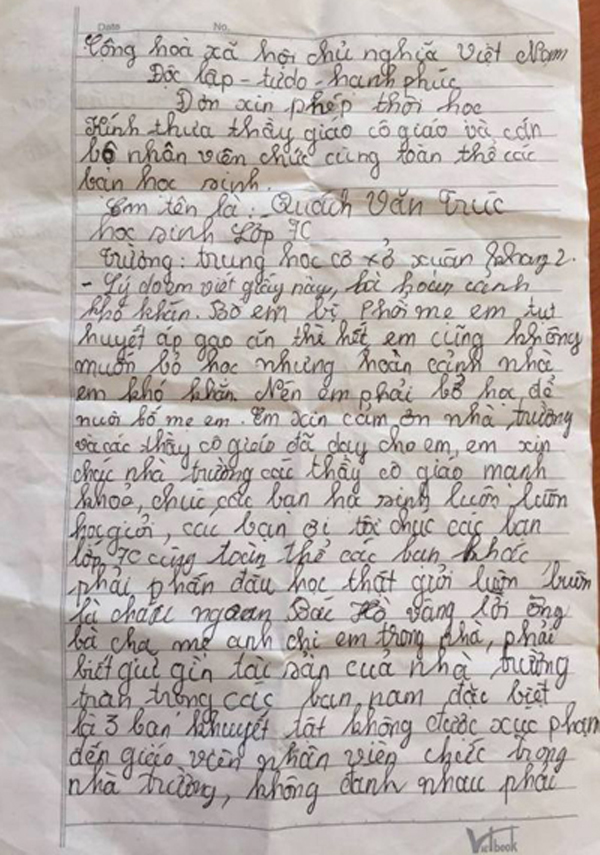 Date No.
Cộng hoà xã hội chủ nghĩa Việt Nam
Độc lập - tự do - hạnh phúc
Đơn xin phép thôi học
Kính thưa thầy giáo cô giáo và cán
bộ nhân viên chức cùng toàn thể các
bạn học sinh.
Em tên là: Quách Văn Trúc
học sinh Lớp 7C
trường: trung học cơ xở xuân khang 2.
- Lý do em viết giấy này, là hoàn cảnh
khó khăn. Bố em bị phổi mẹ em tụt
huyết áp gạo ăn thì hết em cũng không
muốn bỏ học nhưng hoàn cảnh nhà
em khó khăn. Nên em phải bỏ học để
nuôi bố mẹ em. Em xin cảm ơn nhà trường
và các thầy cô giáo đã dạy cho em, em xin
chúc nhà trường các thầy cô giáo mạnh
khoẻ, chúc các bạn học sinh luôn luôn
học giởi, các bạn ơi tôi chúc các bạn
lớp 7C cùng toàn thể các bạn khác
phải phấn đấu học thật giởi luôn luôn
là cháu ngoan Bác Hồ vâng lời ông
bà cha mẹ anh chị em trong nhà, phải
biết giữ gìn tài sản của nhà trường
trân trọng các bạn nam đặc biệt
là 3 bạn khuyết tật không được xúc phạm
đến giáo viên nhân viên chức trong
nhà trường, không đánh nhau phải
Vietbook